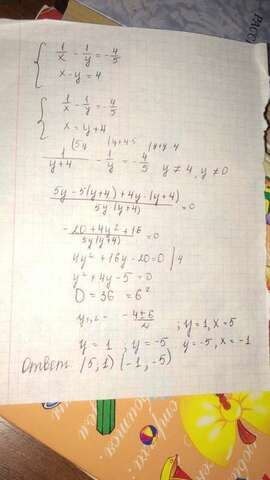 1/x - 1/y = -4/5
x - y = 4
1/x - 1/y = -4/5
x = y + 4
1/(y+4) - 1/y = -4/5 y ≠ 4, y ≠ 0
(5y - 5(y+4) + 4y·(y+4))/(5y(y+4)) = 0
(-20 + 4y² + 16)/(5y(y+4)) = 0
4y² + 16y - 20 = 0 | 4
y² + 4y - 5 = 0
D = 36 = 6²
y₁,₂ = (-4 ± 6)/2 ; y = 1, x = 5
y = 1 ; y = -5 y = -5, x = -1
Ответ (5, 1) (-1, -5)